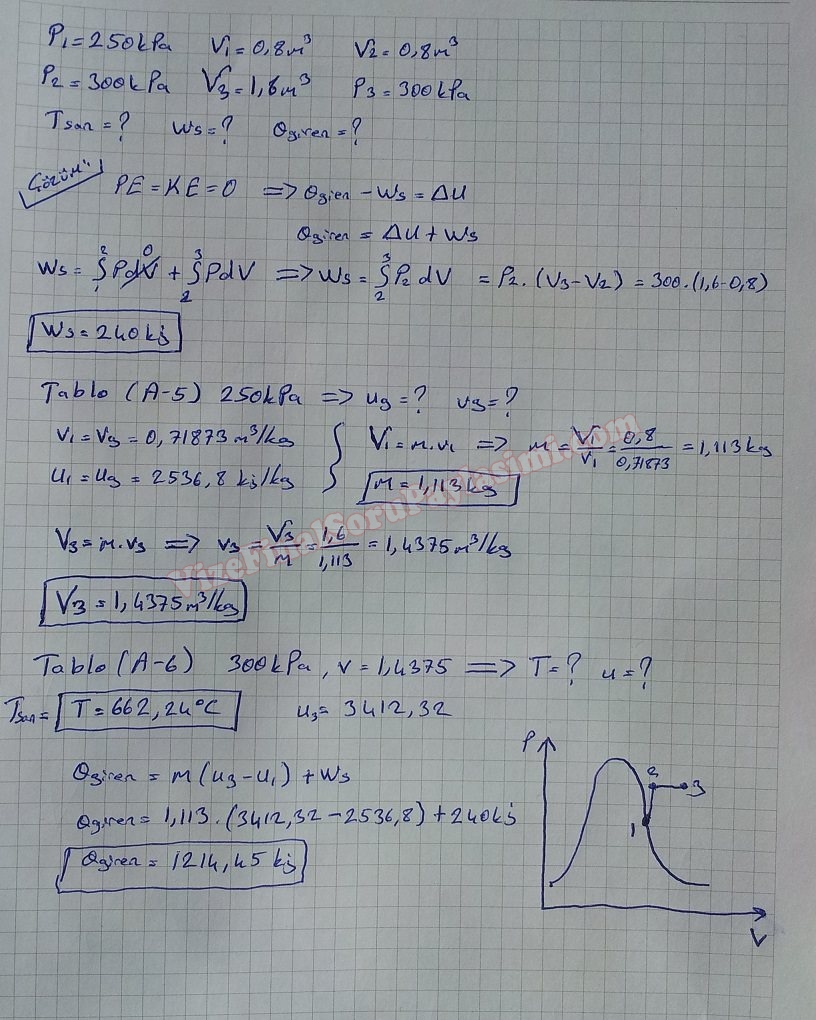 P₁ = 250kPa V₁ = 0,8m³ V₂ = 0,8m³
P₂ = 300kPa V₃ = 1,6m³ P₃ = 300kPa
Tson = ? Ws = ? Qgiren = ?
Çözüm:
PE = KE = 0 => Qgien - Ws = ΔU
Qgiren = ΔU + Ws
Ws = ₁∫² PdV⁰ + ₂∫³ PdV => Ws = ₂∫³ P₂ dV = P₂ . (V₃ - V₂) = 300 . (1,6 - 0,8)
Ws = 240 kj
Tablo (A-5) 250kPa => ug = ? vg = ?
v₁ = vg = 0,71873 m³/kg
u₁ = ug = 2536,8 kj/kg
V₁ = m.v₁ => m = V₁/v₁ = 0,8/0,71873 = 1,113 kg
m = 1,113 kg
V₃ = m.v₃ => v₃ = V₃/m = 1,6/1,113 = 1,4375 m³/kg
V₃ = 1,4375 m³/kg
Tablo (A-6) 300kPa, v = 1,4375 => T = ? u = ?
Tson = T = 662,24°C u₃ = 3412,32
Qgiren = m (u₃ - u₁) + Ws
Qgiren = 1,113 . (3412,32 - 2536,8) + 240kj
Qgiren = 1214,45 kj
P
2 3
1
V
VizeFinalSoruPaylasimi.com